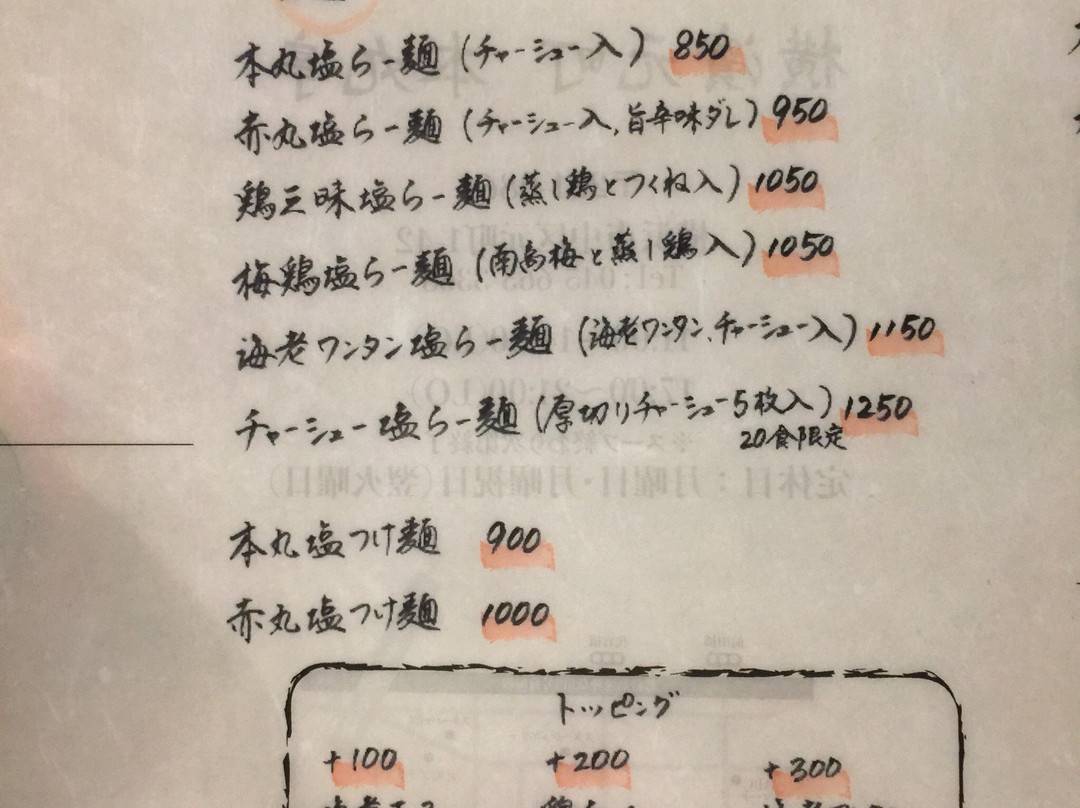 本丸塩らー麺 (チャーシュー入) 850
赤丸塩らー麺 (チャーシュー入,旨辛味ダレ) 950
鶏三味塩らー麺 (蒸し鶏とつくね入) 1050
梅鶏塩らー麺 (南高梅と蒸し鶏入) 1050
海老ワンタン塩らー麺 (海老ワンタン、チャーシュー入) 1150
チャーシュー塩らー麺 (厚切りチャーシュー5枚入) 1250
20食限定
本丸塩つけ麺 900
赤丸塩つけ麺 1000
トッピング
+100 +200 +300